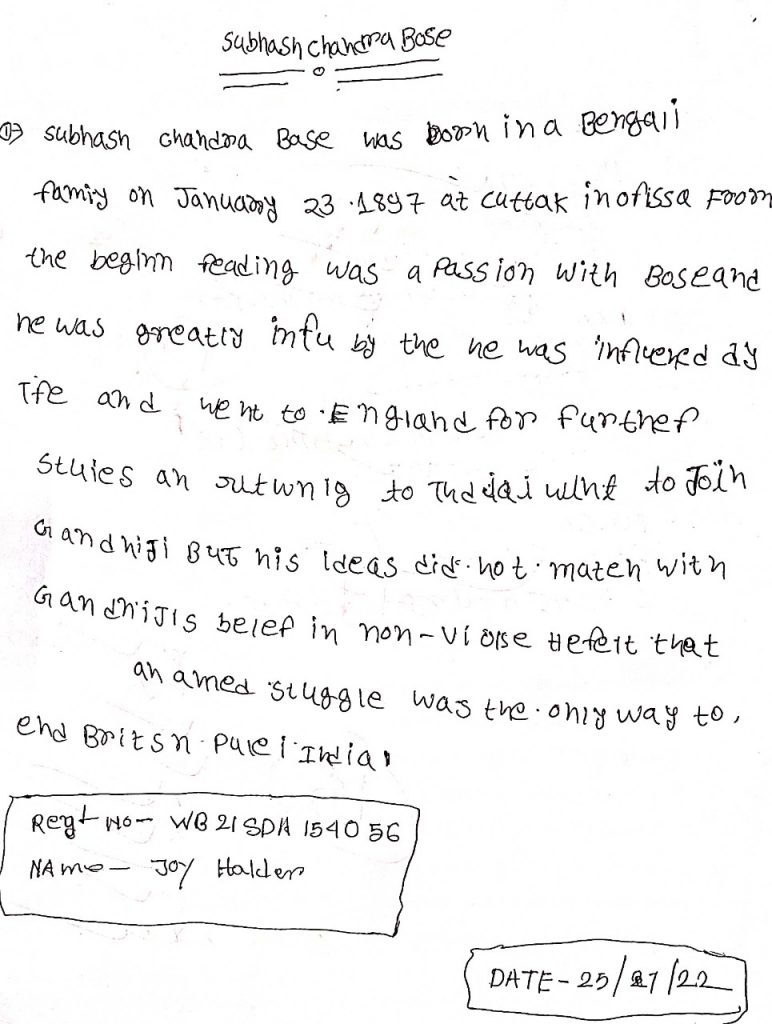 Subhash Chandra Bose
1) Subhash Chandra Base was born in a Bengali
famiy on January 23.1897 at Cuttak in orissa Froom
the beginn reading was a Passion with Bose and
he was greatly infu by the he was influened dy
Tfe and went to England for further
Stuies an to to Join
Gandhiji But his Ideas did not match with
Gandhijis belef in non-viorse Hefelt that
an amed stuggle was the only way to,
end Britsn Rule i India.
Regt No- WB21SDA 154056
NAme- Joy Halder
DATE- 25/ /22